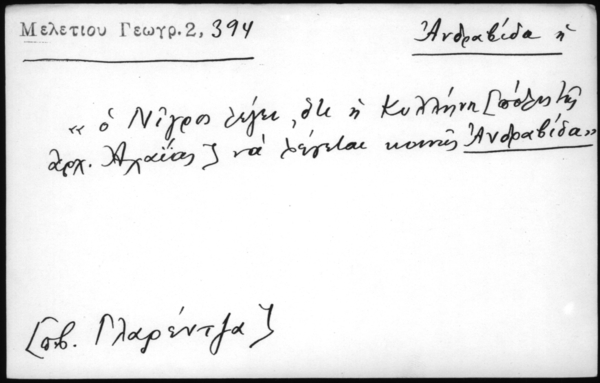 Μελετίου Γεωγρ. 2, 394
Ἀνδραβίδα ἡ
« ὁ Νῖγρος λέγει, ὅτι ἡ Κυλλήνη [πόλις τῆς
ἀρχ. Ἀχαΐας] νά λέγεται κοινῶς Ἀνδραβίδα»
[πβ. Γλαρέντζα]